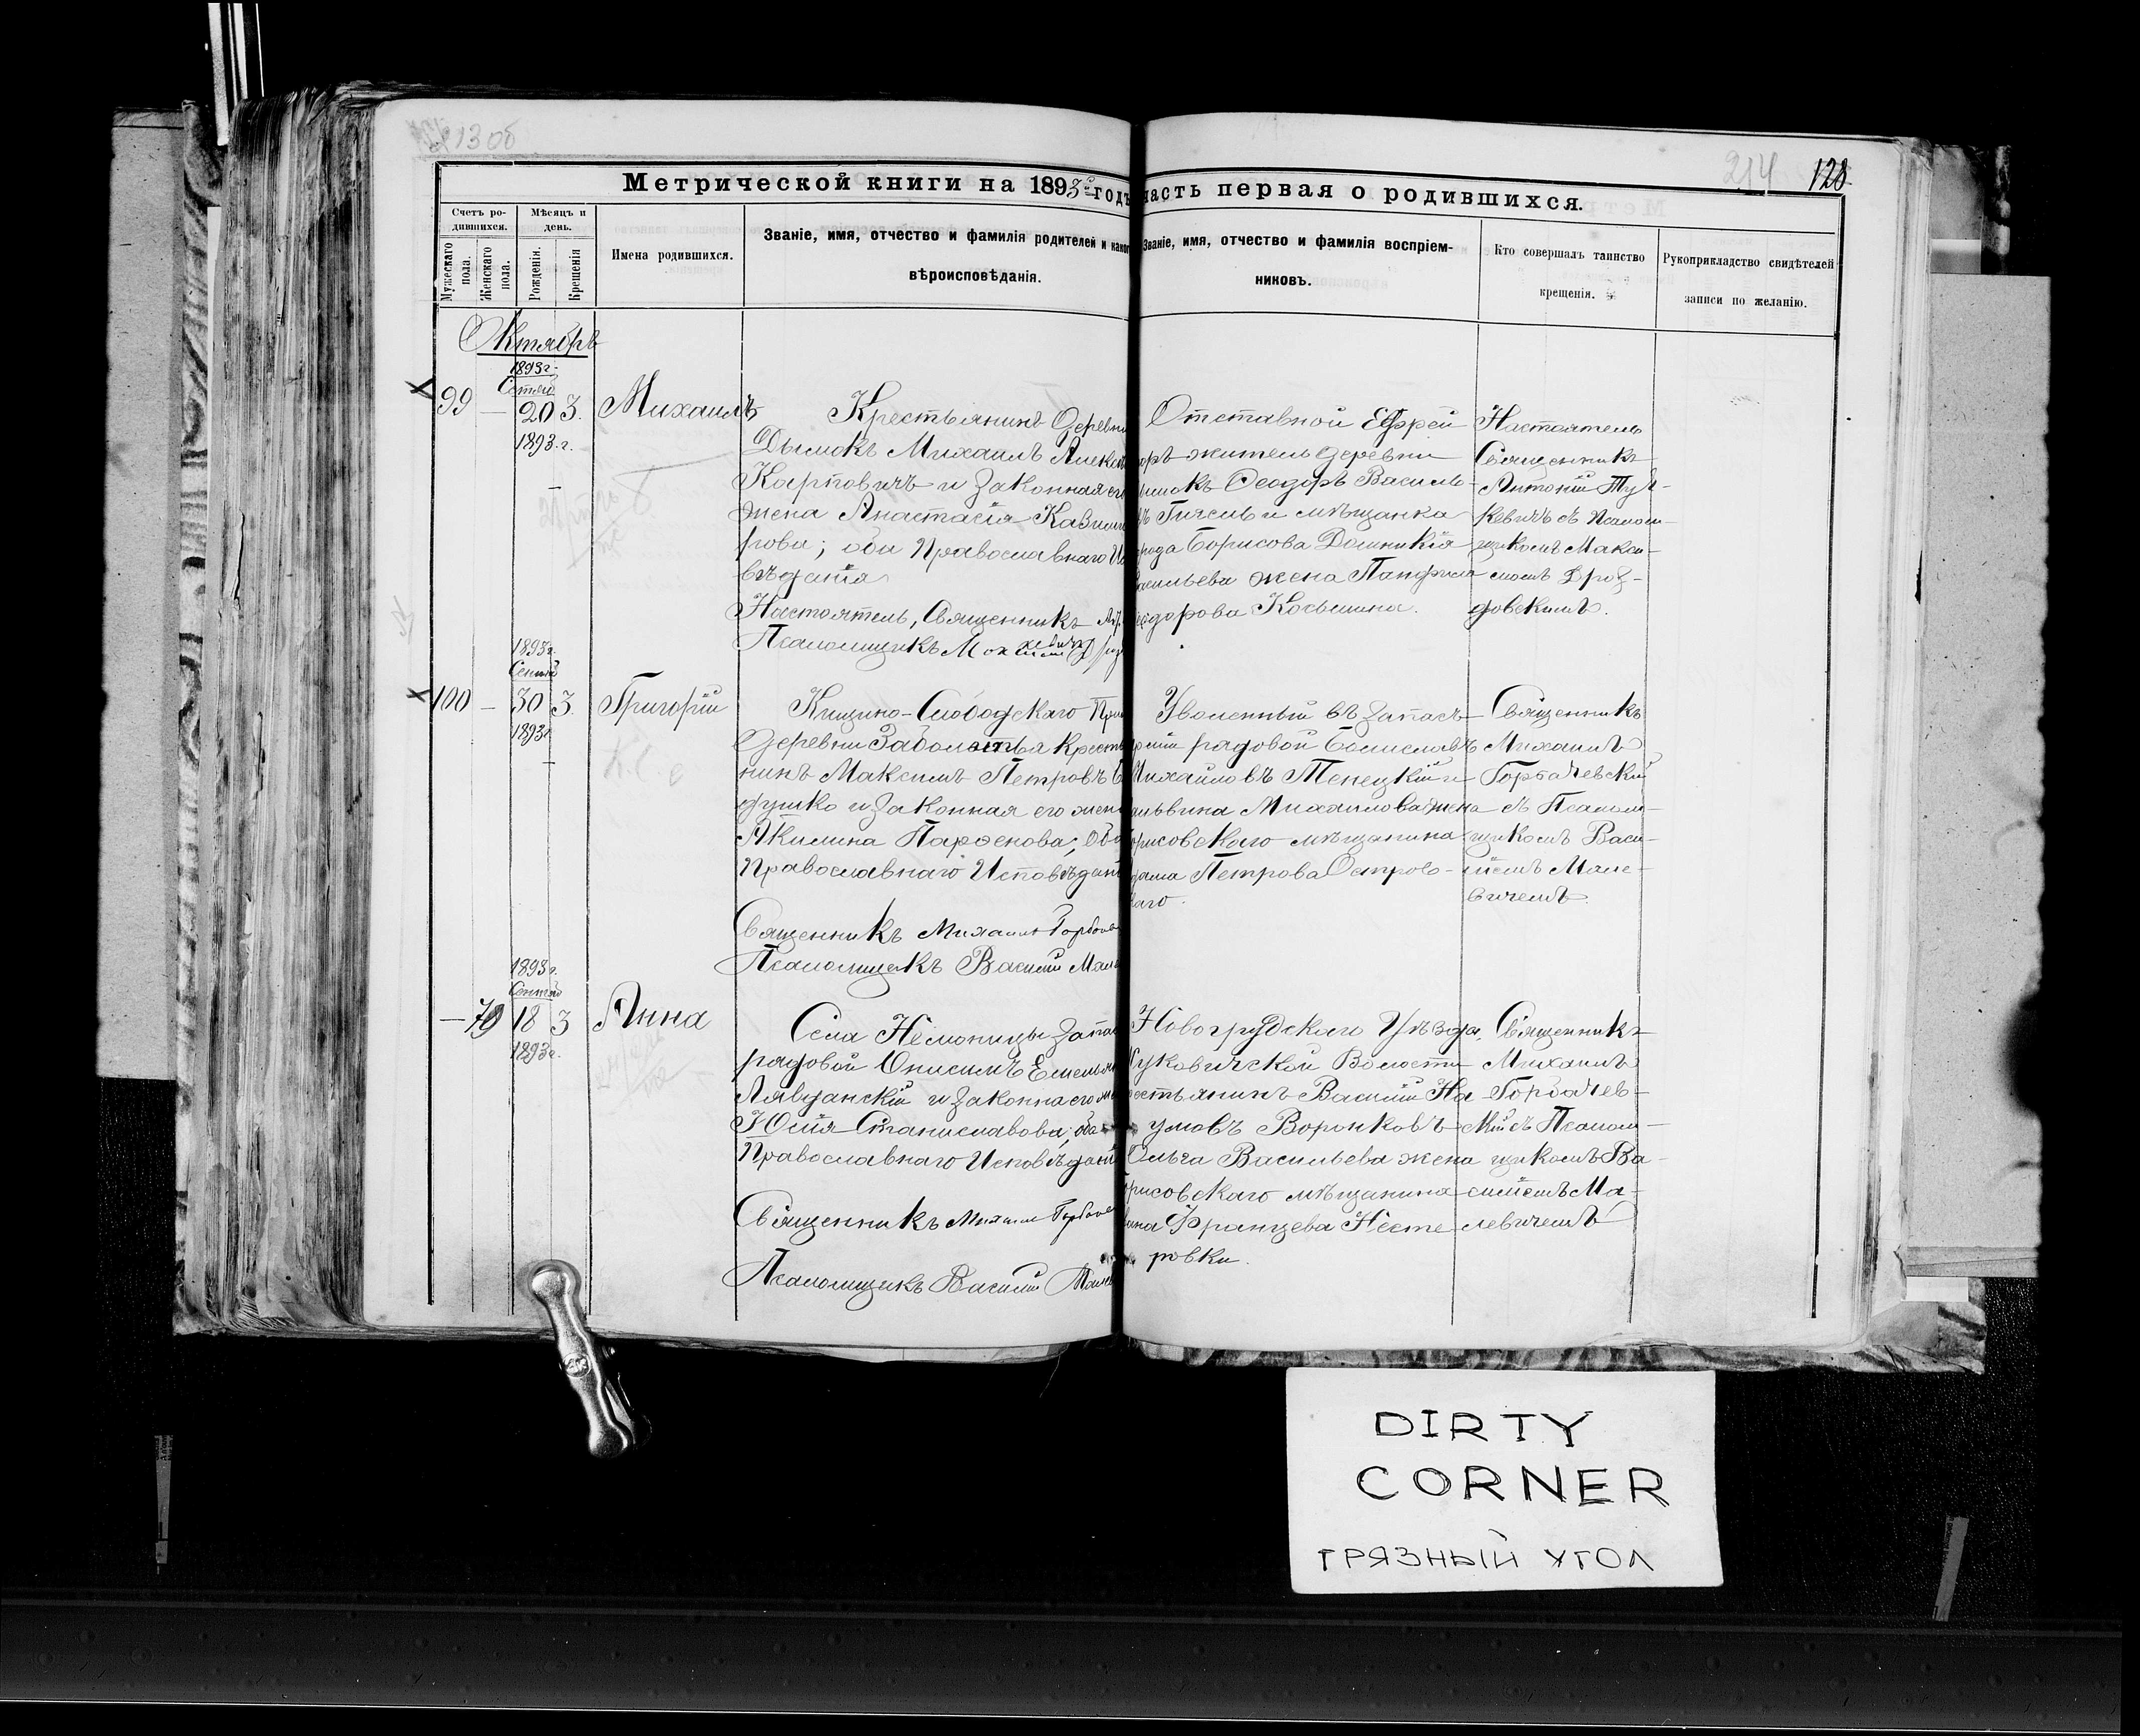 213 об
214 128
Метрической книги на 1893й годъ часть первая о родившихся.
Счетъ родившихся.
Мужескаго пола.
Женскаго пола.
Мѣсяцъ и день.
Рожденія.
Крещенія
Имена родившихся.
Званіе, имя, отчество и фамилія родителей и како
вѣроисповѣданія.
Званіе, имя, отчество и фамилія воспріем-
никовъ.
Кто совершалъ таинство
крещенія.
Рукоприкладство свидѣтелей
записи по желанію.
Октябрь
1893 г.
99 — 20 3. Михаилъ
1893 г.
Крестьянинъ Деревни
Дымокъ Михаилъ Алекс
Карповичъ и законная ег
жена Анастасія Казими
рова; оба Православнаго Ис
вѣданія
Настоятель, Священникъ
Псаломщикъ
Отставной Ефрей
оръ житель деревни
ымокъ Ѳеодоръ Василь-
въ и мѣщанка
рода Борисова Домникія
асильева жена Панфила
еодорова Косьмина.
Настоятель
Священникъ
Антоній Тул-
кевичъ съ Псалом-
щикомъ Макси-
момъ Дроз-
довскимъ.
1893 г.
100 — 30 3. Григорій
1893 г.
Кищино-Слободскаго При
Деревни Заболотья Кресть
нинъ Максимъ Петровъ С
душко и законная его жена
Акилина Парѳенова; оба
Православнаго Исповѣдан
Священникъ Михаилъ Горбаче
Псаломщикъ Василій Мал
Уволенный въ запасъ
рміи рядовой Болиславъ
Михайловъ Тенецкій и
альвина Михайлова жена
орисовскаго мѣщанина
дама Петрова Острово-
каго.
Священникъ
Михаилъ
Горбачевскій
съ Псалом-
щикомъ Васи-
ліемъ Мале-
вичемъ.
1893 г.
— 79 18 3 Анна
1893 г.
Села Нёманицы Запас
рядовой Онисимъ Емельян
и законна его же
Юлія Станиславова; оба
Православнаго Исповѣдані
Священникъ Михаилъ Горбаче
Псаломщикъ Василій Малев
Новогрудскаго Уѣзда,
уковичской Волости
рестьянинъ Василій На
умовъ Воронковъ
Ольга Васильева жена
орисовскаго мѣщанина
вана Францева Несте
ровки.
Священникъ
Михаилъ
Горбачев-
скій съ Псалом-
щикомъ Ва-
силіемъ Ма-
левичемъ
DIRTY
CORNER
ГРЯЗНЫЙ УГОЛ